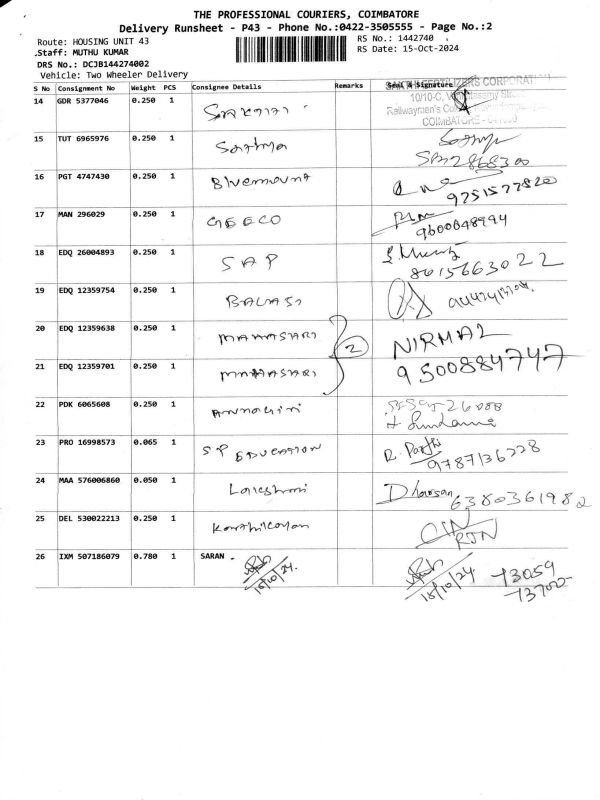 THE PROFESSIONAL COURIERS, COIMBATORE
Delivery Runsheet - P43 - Phone No.:0422-3505555 - Page No.:2
Route: HOUSING UNIT 43
RS No.: 1442740
Staff: MUTHU KUMAR
RS Date: 15-Oct-2024
DRS No.: DCJB144274002
Vehicle: Two Wheeler Delivery
S No Consignment No Weight PCS Consignee Details Remarks Seal & Signature
14 GDR 5377046 0.250 1
15 TUT 6965976 0.250 1 Sathya
16 PGT 4747430 0.250 1 Bluemount 9751577820
17 MAN 296029 0.250 1 GEECO 9600048994
18 EDQ 26004893 0.250 1 SAP 8015663022
19 EDQ 12359754 0.250 1 BALAJI
20 EDQ 12359638 0.250 1 2 NIRMAL
21 EDQ 12359701 0.250 1 9500884747
22 PDK 6065608 0.250 1
23 PRO 16998573 0.065 1 SP EDUCATION R. 9787136228
24 MAA 576006860 0.050 1 Lakshmi Dharsan 6380361982
25 DEL 530022213 0.250 1 Karthikeyan
26 IXM 507186079 0.780 1 SARAN - 15/10/24. 15/10/24 73059
73700